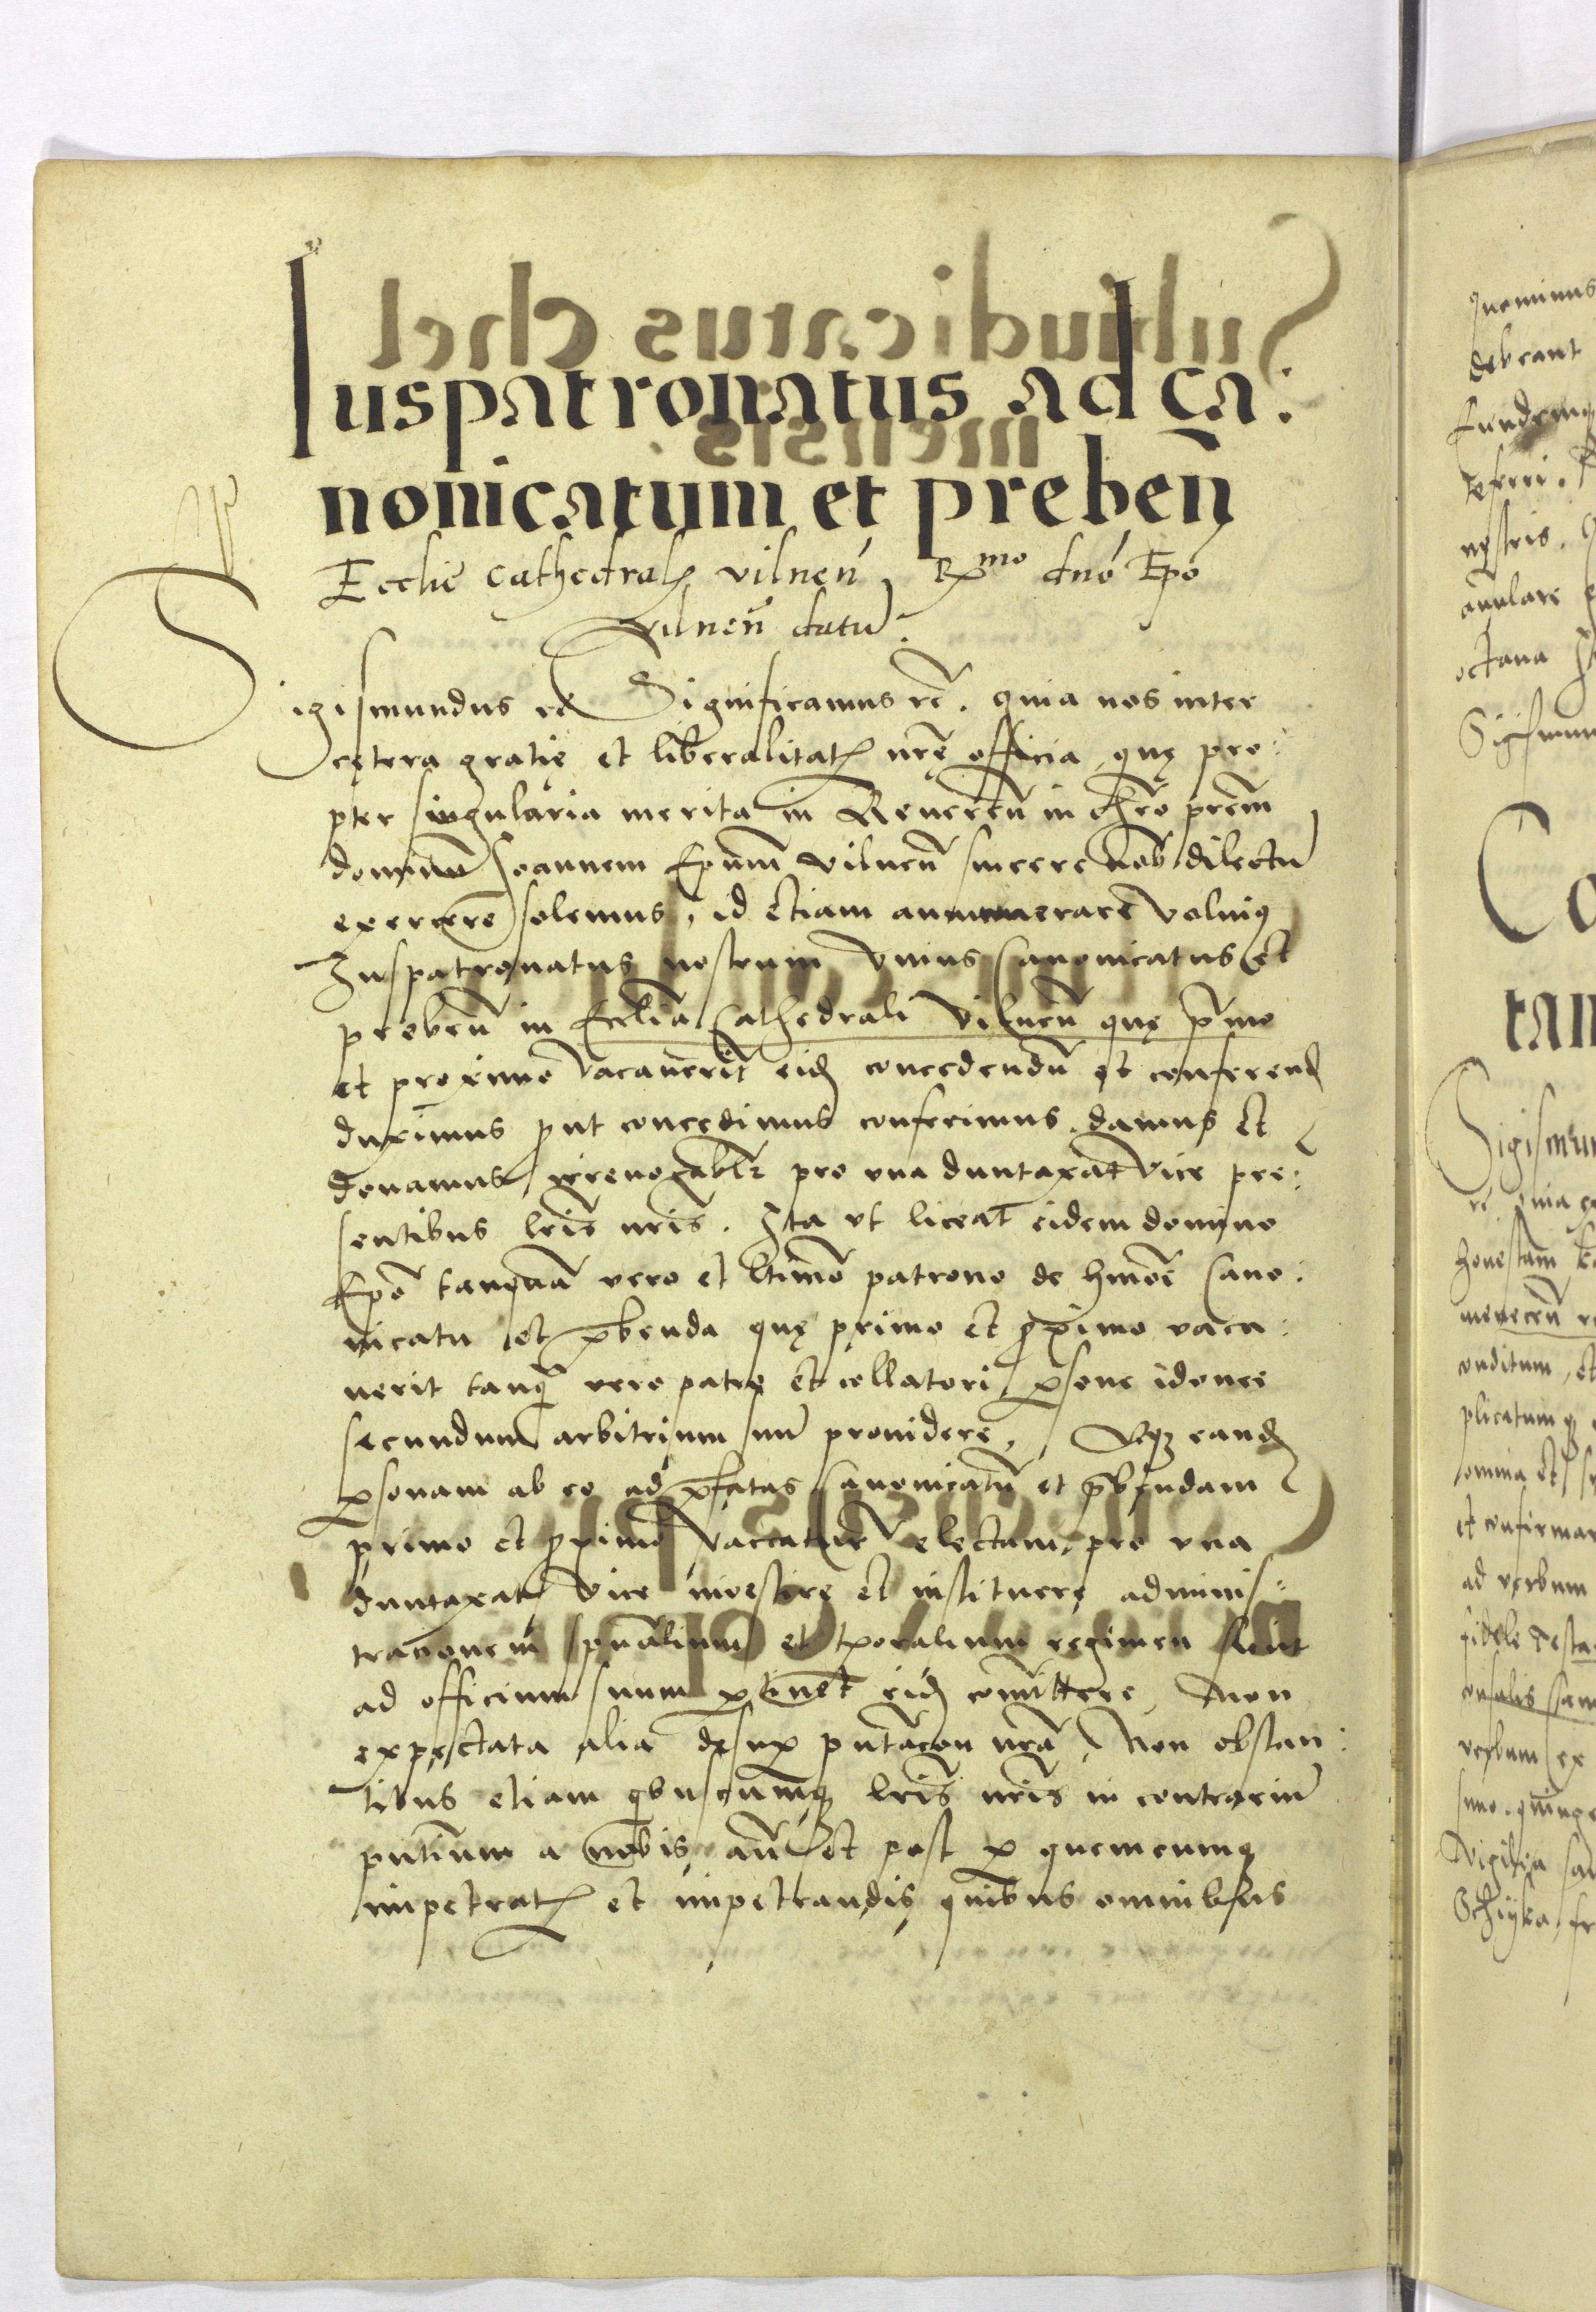 Iuspatronatus ad ca:
nonicatum et prebeñ
Ecclie Cathedral vilnen̄, Rmo dno Epo
vilnen̄ datu.
Sigismundus rc Significamus rc. quia nos inter
cętera gratię et liberalitat nrę officia, quę pro:
pter singularia merita in Reueren̄ in chro prem
dominum Joannem Epum vilnen̄ sincere nob dilectu
exercere solemus, id etiam annumerare volui9
Iuspatronatus nostrum vnius canonicatus et
preben̄ in Ecclia Cathedrali vilnen̄ quę pmo
et proximo vacauerit eid concedendu et conferend
duximus put concedimus conferimus damus et
donamus irreuogablr pro vna duntaxat vice pre:
sentibus lris nris. Ita vt liceat eidem domino
Epo tanqua vero et ltimo patrono de hmoi cano:
nicatu et pbenda quę primo et pximo vaca:
uerit tanq vero patro et collatori psone idonee
secundum arbitrium suu prouidere, eand
psonam ab eo ad pfatas canonicatu et pbendam
primo et pximo vaccatur electam, pro vna
duntaxat vice inuestire et instituere adminis:
tracionem spualium et tporalium regimen sicut
ad officium suum ptinet eid comittere, Non
expectata alia desup pntacion nra, Non obstan:
tibus etiam qbuscumq lris nris in contrariu
a nobis, an et post p quemcumq
impetrat et impetrandis quibus omnibus
queminus
debeant
nostris.
octaua
Sigismun
Co
tam
Sigismun
rc quia
honestam
conditum, et
plicatumq
omnia et
et confirmar
ad verbum
fidele testa
verbum ex
Vigilia